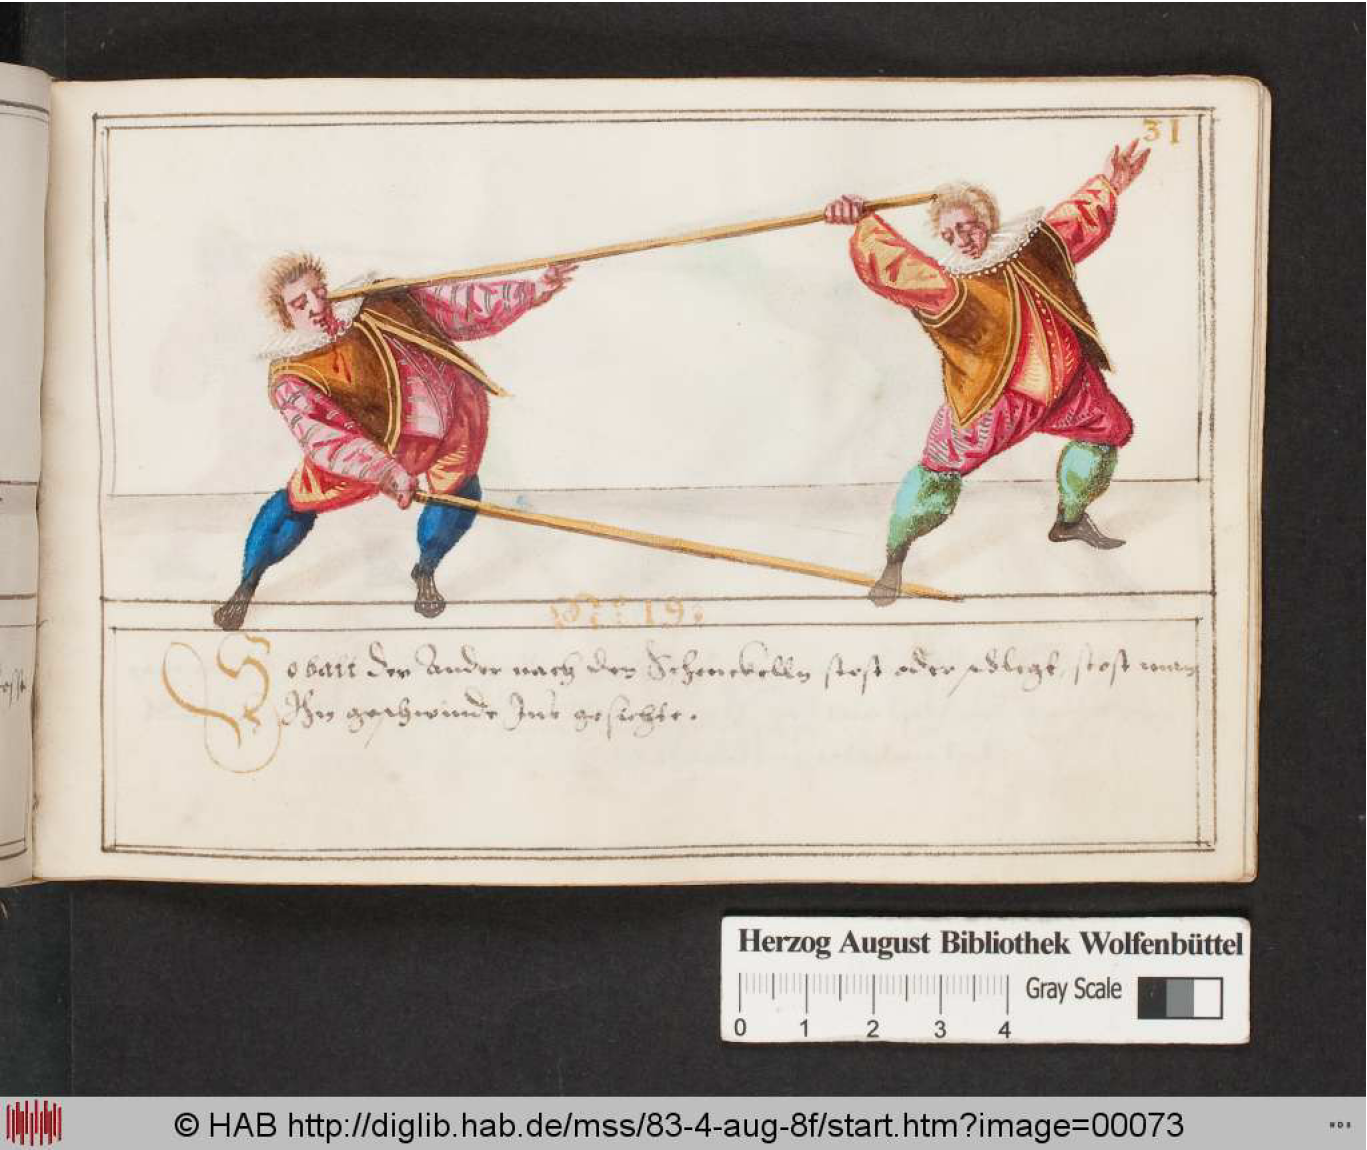 31
19.
Sobalt der Ander nach den Schenckelln stost oder schlegt, stost man
Ihn geschwinde Ins gesichte.
Herzog August Bibliothek Wolfenbüttel
Gray Scale
0 1 2 3 4
© HAB http://diglib.hab.de/mss/83-4-aug-8f/start.htm?image=00073